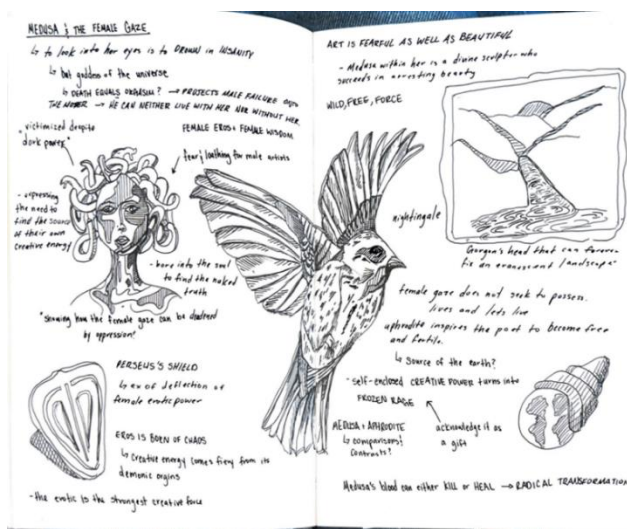 MEDUSA & THE FEMALE GAZE
↳ to look into her eyes is to DROWN in INSANITY
↳ but goddess of the universe
↳ DEATH EQUALS ORGASM? → PROJECTS MALE FAILURE onto
THE MOTHER → HE CAN NEITHER LIVE WITH HER NOR WITHOUT HER
"victimized despite
dark power"
FEMALE EROS + FEMALE WISDOM
fear & loathing for male artists
- expressing
the need to
find the source
of their own
creative energy!
- bore into the soul
to find the naked
truth
"showing how the female gaze can be
by oppression"
PERSEUS'S SHIELD
↳ ex of deflection of
female erotic power
EROS IS BORN OF CHAOS
↳ creative energy comes from its
demonic origins
- the erotic is the strongest creative force
ART IS FEARFUL AS WELL AS BEAUTIFUL
- Medusa within her is a divine sculptor who
succeeds in arresting beauty
WILD, FREE, FORCE
nightingale
Gorgon's head that can forever
fix an evanescent landscape"
female gaze does not seek to possess.
lives and lets live
aphrodite inspires the poet to become free
and fertile.
↳ source of the earth?
- self-enclosed CREATIVE POWER turns into
FROZEN RAGE
MEDUSA + APHRODITE
↳ comparisons?
contrasts?
acknowledge it as
a gift
Medusa's blood can either KILL or HEAL → RADICAL TRANSFORMATION